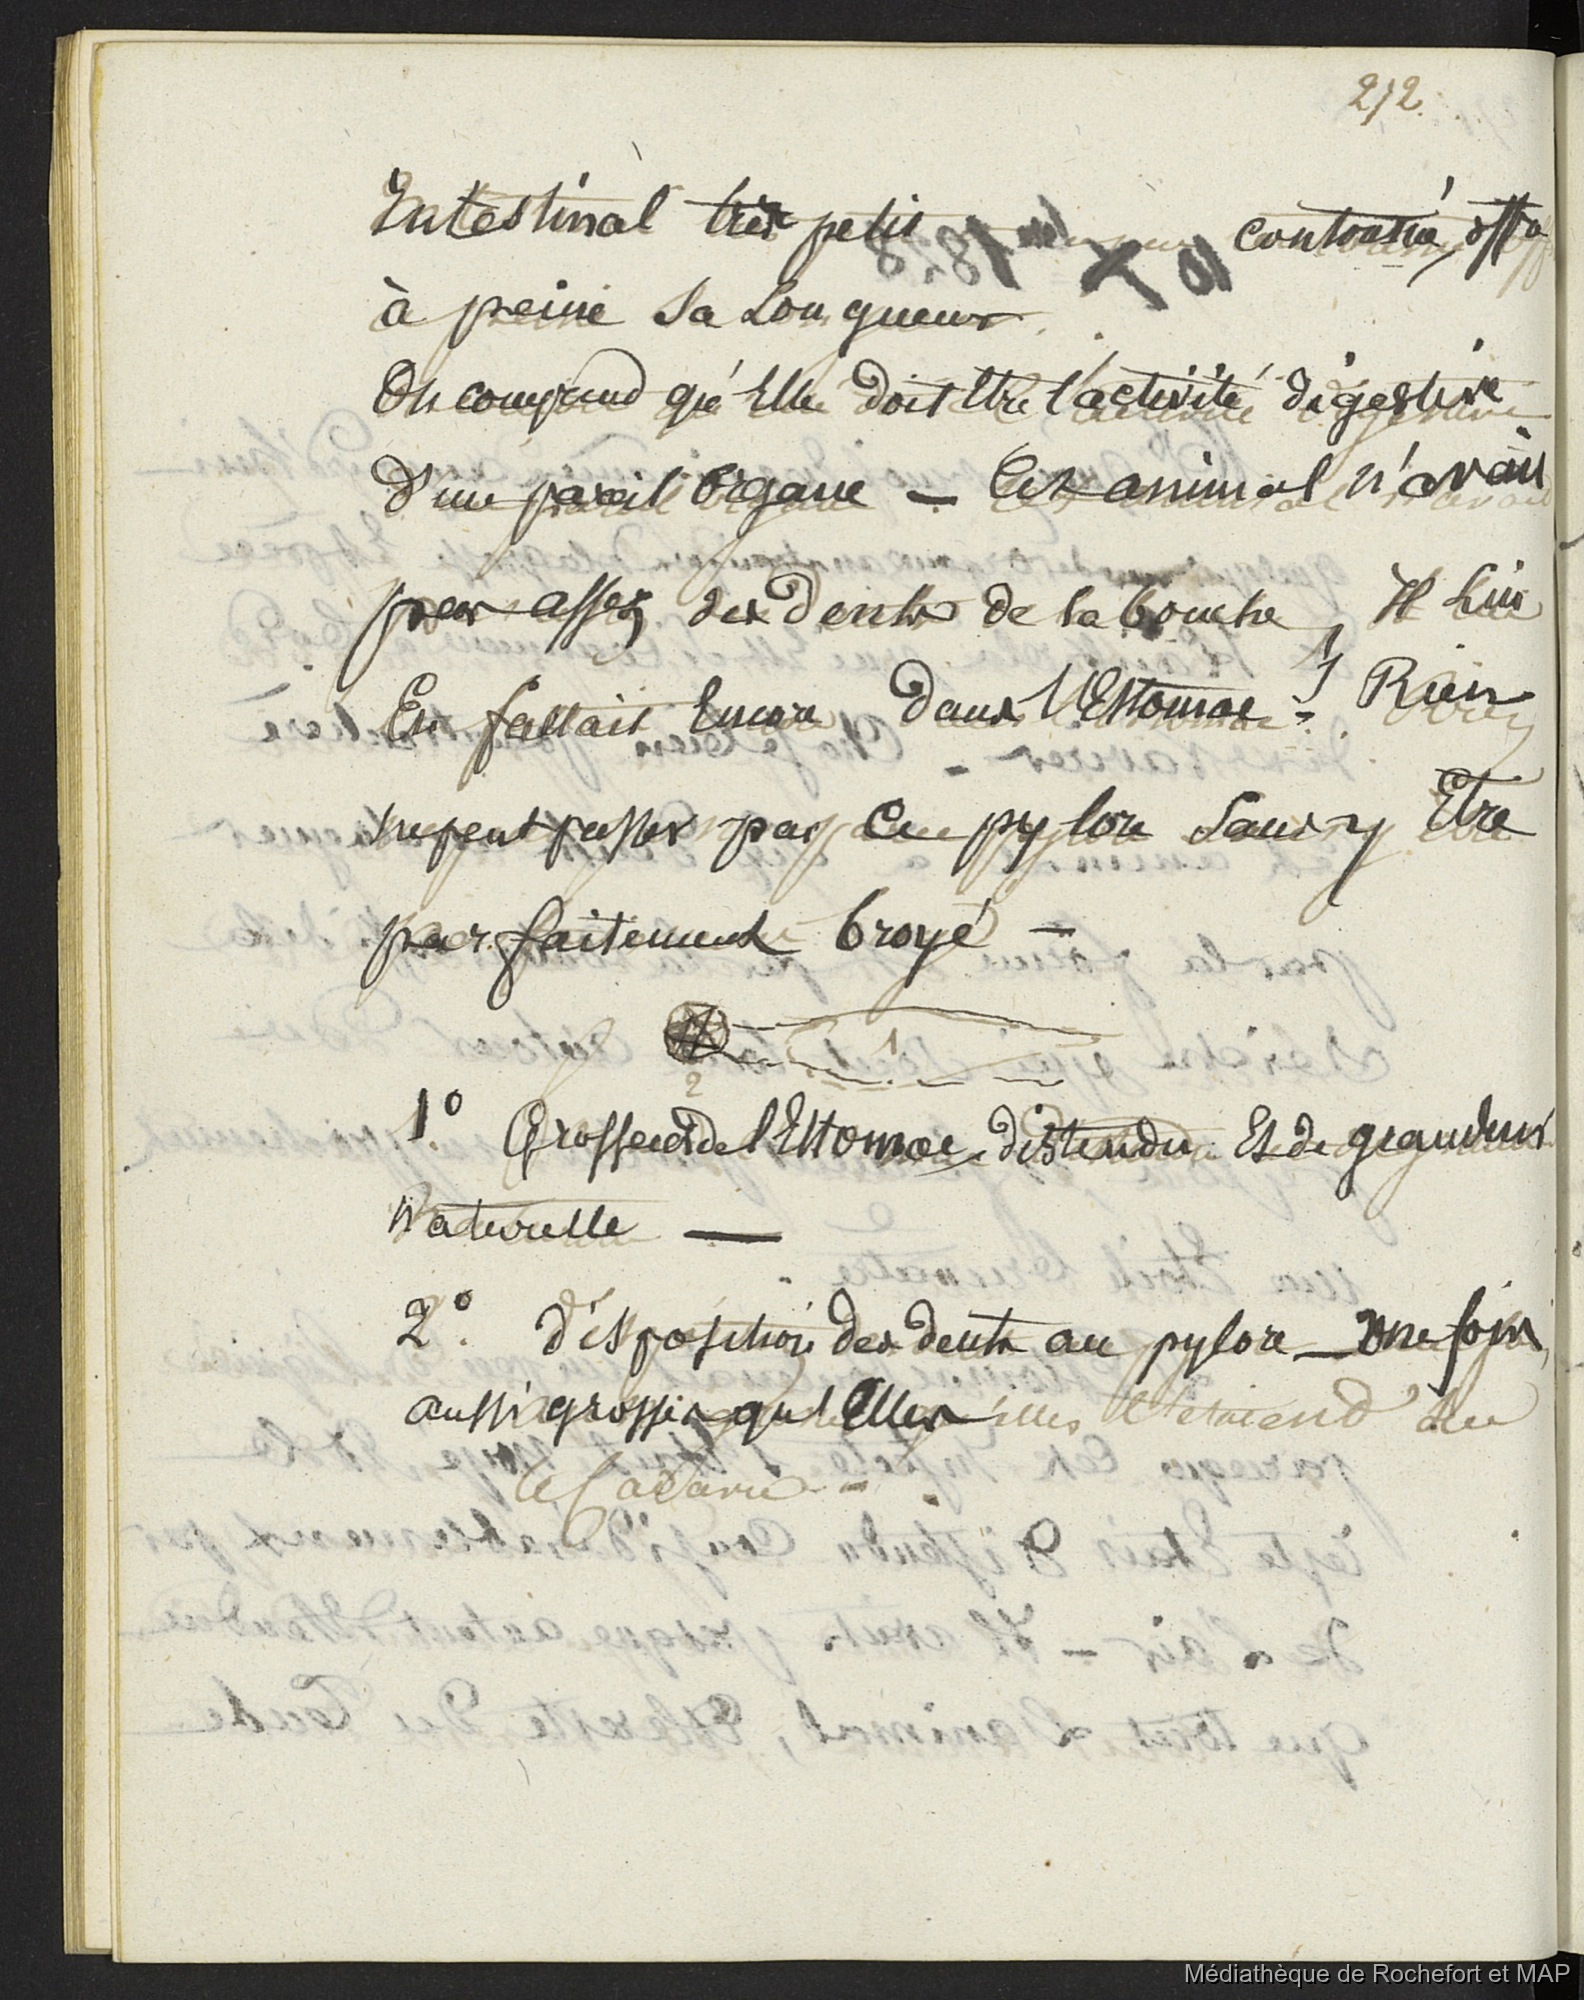 212.
Intestinal très petit contourné, offra
à peine sa Longueur
On comprend qu'elle doit Etre l'activité digestive
d'un pareil Organe — Cet animal n'avait
pas assez des Dents de la bouche, Il lui
En fallait Encore dans l'Estomac ! Rien
ne peut passer par ce pylore sans y Etre
parfaitement broyé —
1
2
1° Grosseur de l'Estomac distendu Et de grandeur
Naturelle —
2° disposition des dents au pylore — une fois
aussi grosses qu'Elles
le Cadavre —
Médiathèque de Rochefort et MAP